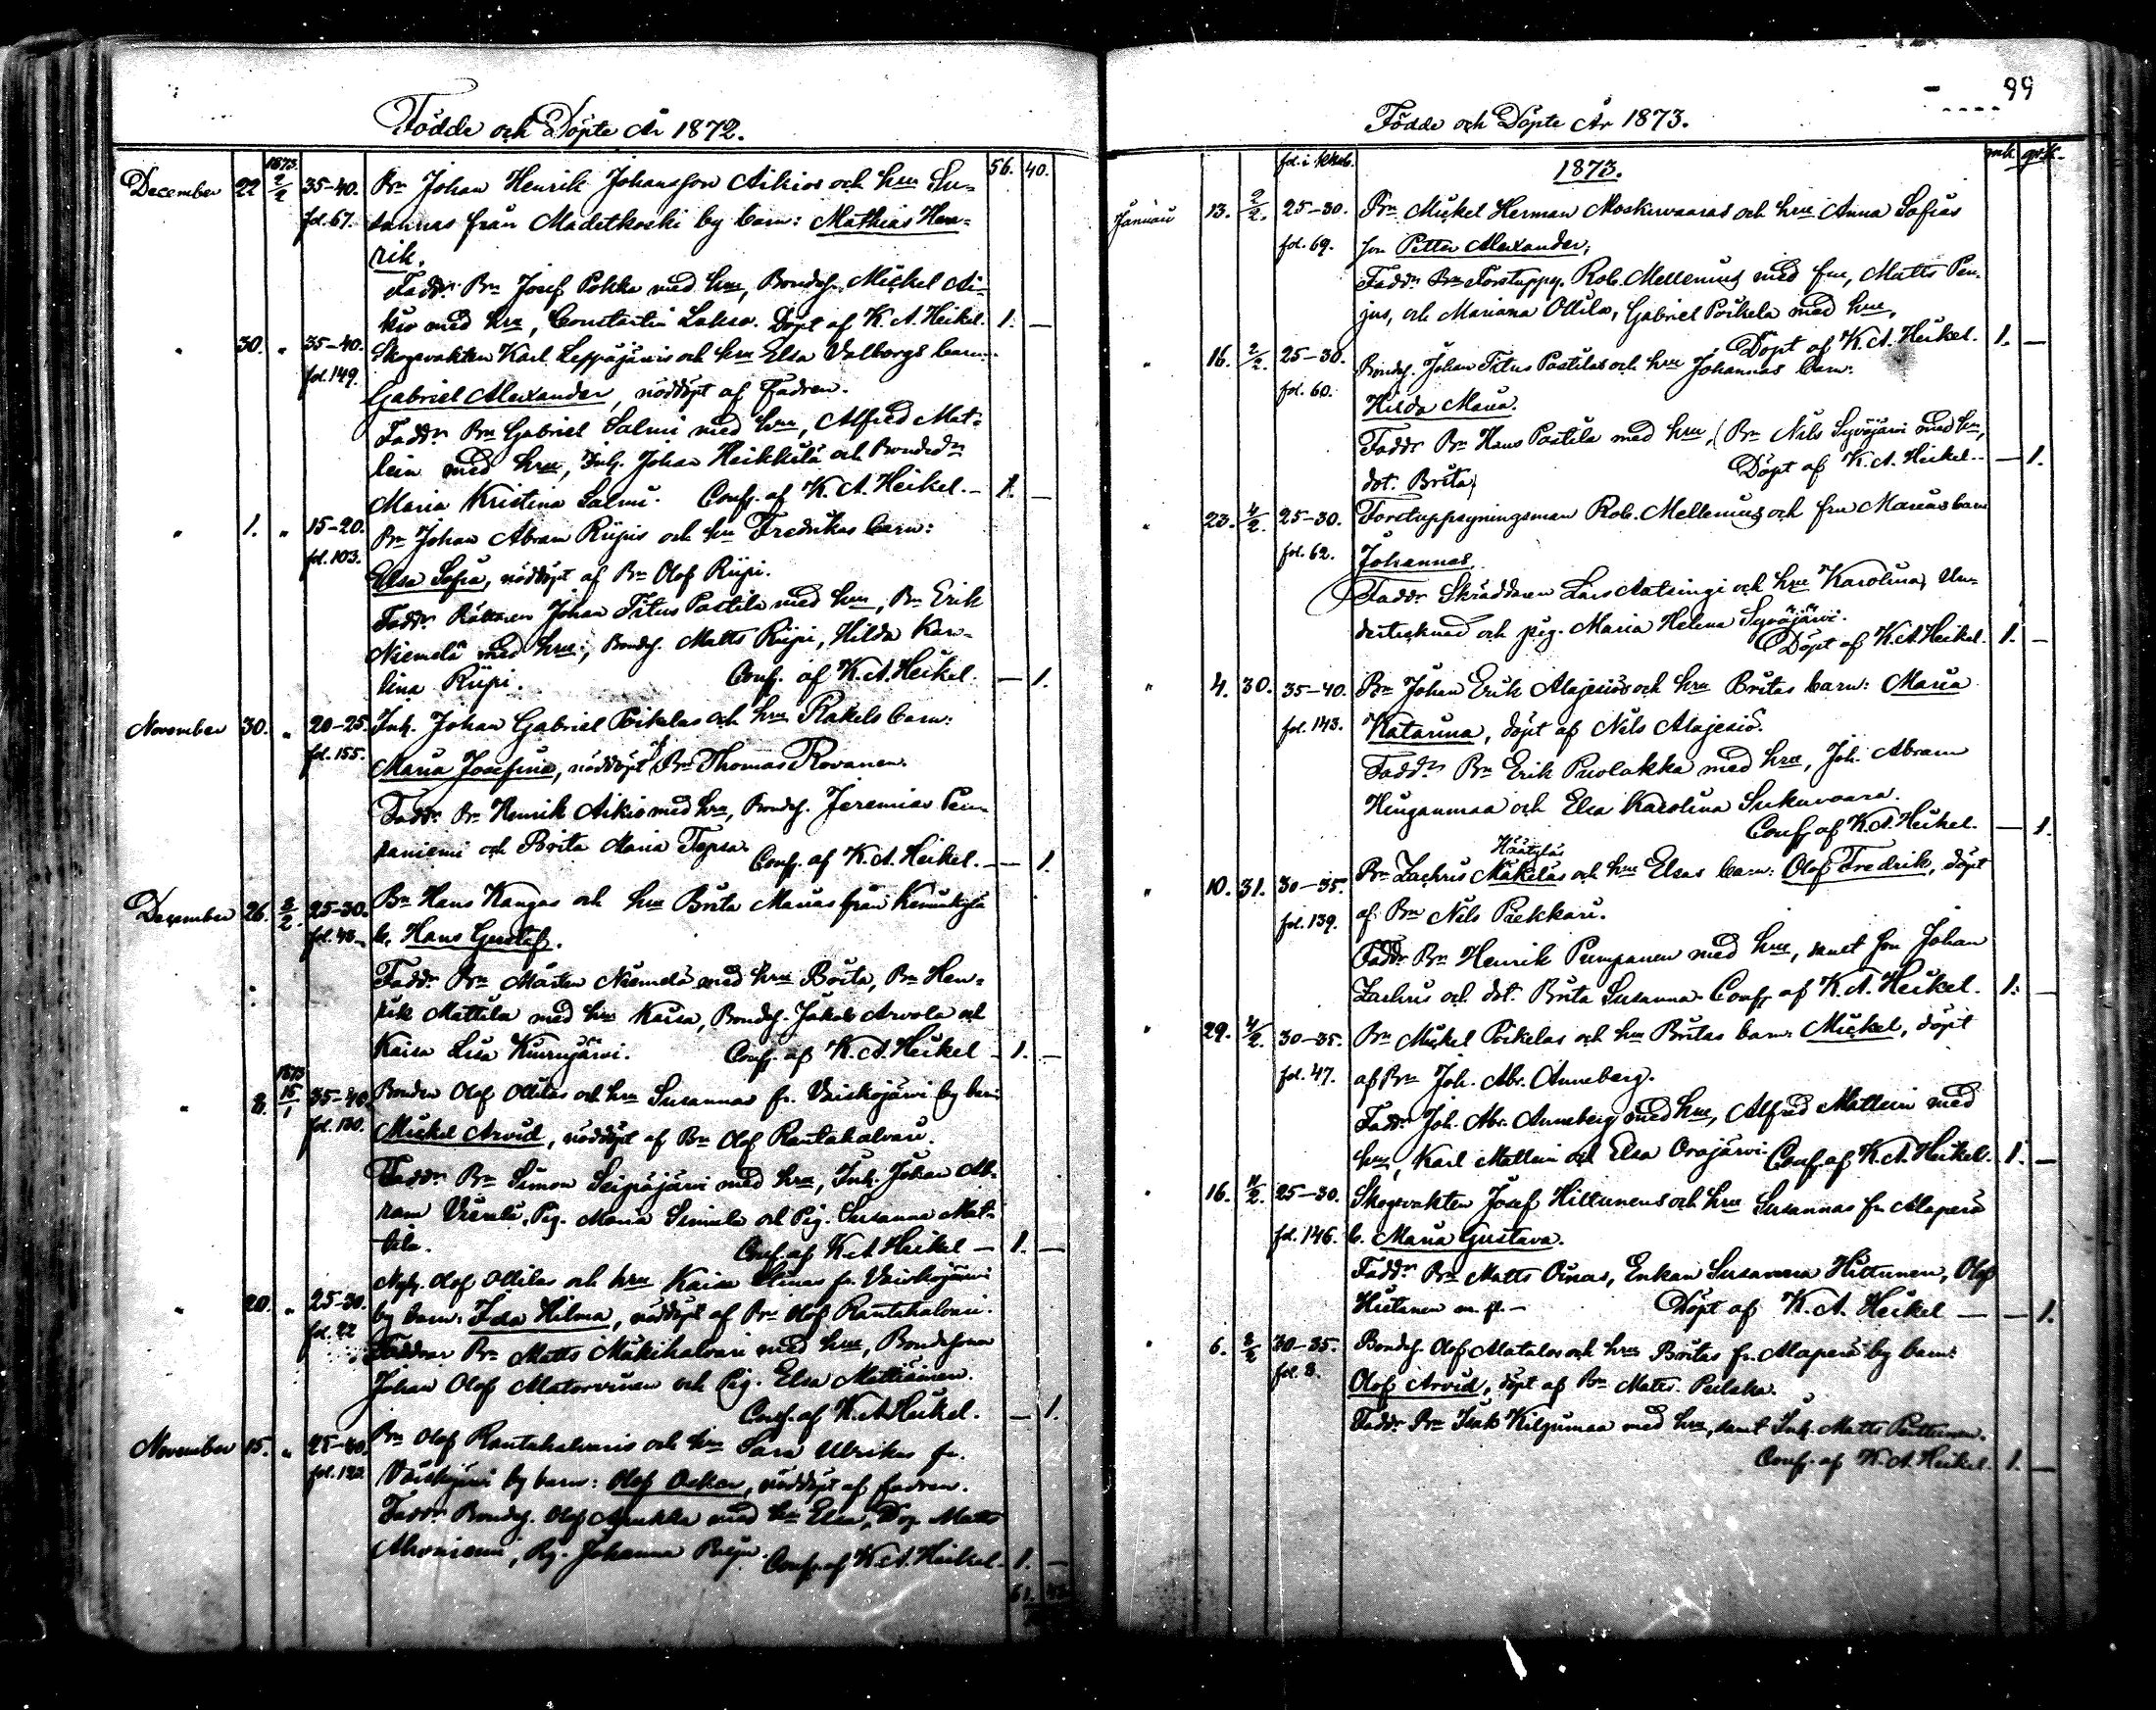 Födde och Döpte År 1872.
1873. 56. 40.
December 22 2/2 35-40. Bn Johan Henrik Johansson Aikios och hru Su-
fol. 67. sannas från Madetkoski by barn: Mathias Hen-
rik.
Faddr. Bn Josef Pokka med hru, Bondes. Mickel Ai-
kio med hru, Constantin Lakso. Döpt af K. A. Heikel. 1. —
" 30. " 35-40. Skogsvakten Karl Leppäjärvis och hru Elsa Valborgs barn:
fol. 149. Gabriel Alexander, nöddöpt af Fadren.
Faddr Bn Gabriel Salmi med hru, Alfred Mat-
lein med hru, Inh. Johan Heikkilä och Bonded.
Maria Kristina Salmi. Conf. af K. A. Heikel. — 1. —
" 1. " 15-20. Bn Johan Abram Riipis och hru Fredrikas barn:
fol. 103. Elsa Sofia, nöddöpt af Bn Olof Riipi.
Faddr. Rättaren Johan Titus Postila med hru, Bn Erik
Niemelä med hru, Bondes. Matts Riipi, Hilda Karo-
lina Riipi. Conf. af K. A. Heikel. — 1.
November 30. " 20-25. Inh. Johan Gabriel Poikelas och hru Rakels barn:
fol. 155. Maria Josefina, nöddöpt af Bn Thomas Rovanen.
Faddr. Bn Henrik Aikio med hru, Bondes. Jeremias
och Brita Maria Tepsa. Conf. af K. A. Heikel. — 1.
December 26. 2/2. 25-30. Bn Hans Kangas och hru Brita Marias från Kemikylä
b. Hans Gustaf.
Faddr. Bn Mårten Niemelä med hru Brita, Bn Hen-
rik Mattila med hru Kaisa, Bondes. Jakob Arvola och
Kaisa Lisa Kuurujärvi. Conf. af K. A. Heikel — 1. —
1873
" 8. 15/1 35-40. Bonden Olof Ollilas och hru Susannas fr. Vaiskojärvi by barn:
fol. 130. Mickel Arvid, nöddöpt af Bn Olof Rautahalvari.
Faddr. Bn Simon Seipäjärvi med hru, Inh. Johan Ab-
ram Pig. Maria och Pig. Susanna Mat-
tila. Conf. af K. A. Heikel — 1. —
" 20. " 25-30. Nyb. Olof Ollilas och hru Kaisa Stinas fr. Vaiskojärvi
fol. 22 by barn: Ida Hilma, nöddöpt af Bn Olof Rautahalvari.
Faddrar Bn Matts Mäkihalvari med hru, Bondesonen
Johan Olof Matorvinen och Pig. Elsa Mattainen.
Conf. af K. A. Heikel. — 1.
November 15. " Bn Olof Rautahalvaris och hru Sara Ulrikas fr.
Vaiskojärvi by barn: Olof Oskar, nöddöpt af fadren.
Faddr Bondes. Olof Apukka med hru Elsa, Matts
Pig. Johanna Conf. af K. A. Heikel. 1. —
61.
99
Födde och Döpte År 1873.
1873. mk.
Januari 13. 2/2. 25-30. Bn Mickel Herman Moskuvaaras och hru Anna Sofias
fol. 69. son Petter Alexander;
Faddr. Forstuppg. Rob. Mellenius med fru, Matts Pen-
jus, och Mariana Ollila, Gabriel Poikela med hru,
Döpt af K. A. Heikel. 1. —
" 16. 2/2. 25-30. Bondes. Johan Titus Postilas och hru Johannas barn:
fol. 60. Hilda Maria.
Faddr. Bn Hans Postila med hru, Bn Nils Syväjärvi med hru,
dot. Brita; Döpt af K. A. Heikel. — 1.
" 23. 4/2. 25-30. Forstuppsyningsman Rob. Mellenius och fru Marias barn
fol. 62. Johannes.
Faddr. Skräddaren Lars Aatsingi och hru Karolina, Un-
dertecknad och pig. Maria Helena Syväjärvi.
Döpt af K. A. Heikel. 1. —
" 4. 30. 35-40. Bn Johan Erik Alajesiös och hru Britas barn: Maria
fol. 143. Katarina, döpt af Nils Alajesiö.
Faddr. Bn Erik Puolakka med hru, Joh. Abram
Hinganmaa och Elsa Karolina Sukuvaara.
Conf. af K. A. Heikel. — 1.
" 10. 31. 30-35. Bn Zachris Mäkeläs och hru Elsas barn: Olof Fredrik, döpt
fol. 139. af Bn Nils Piekkari.
Faddr. Bn Henrik Pumpanen med hru, samt son Johan
Zachris och dot. Brita Susanna. Conf. af K. A. Heikel. 1. —
" 29. 4/2. 30-35. Bn Mickel Poikelas och hru Britas barn: Mickel, döpt
fol. 47. af Bn Joh. Abr. Anneberg.
Faddr. Joh. Abr. Anneberg med hru, Alfred Mattlein med
hru, Karl Mattlein och Elsa Orajärvi. Conf. af K. A. Heikel. 1. —
" 16. 4/2. 25-30. Skogsvakten Josef Hiltunens och hru Susannas fr. Alaperä
fol. 146. b. Maria Gustava.
Faddr. Bn Matts Oinas, Enkan Susanna Hiltunen, Olof
Hiltunen m. fl. — Döpt af K. A. Heikel — — 1.
" 6. 2/2 30-35. Bondes. Olof Matalas och hru Britas fr. Alaperä by barn:
fol. 8. Olof Arvid, döpt af Bn Matts
Faddr. Bn Isak Kiljumaa med hru, samt Inh. Matts Puttunen.
Conf. af K. A. Heikel. 1. —